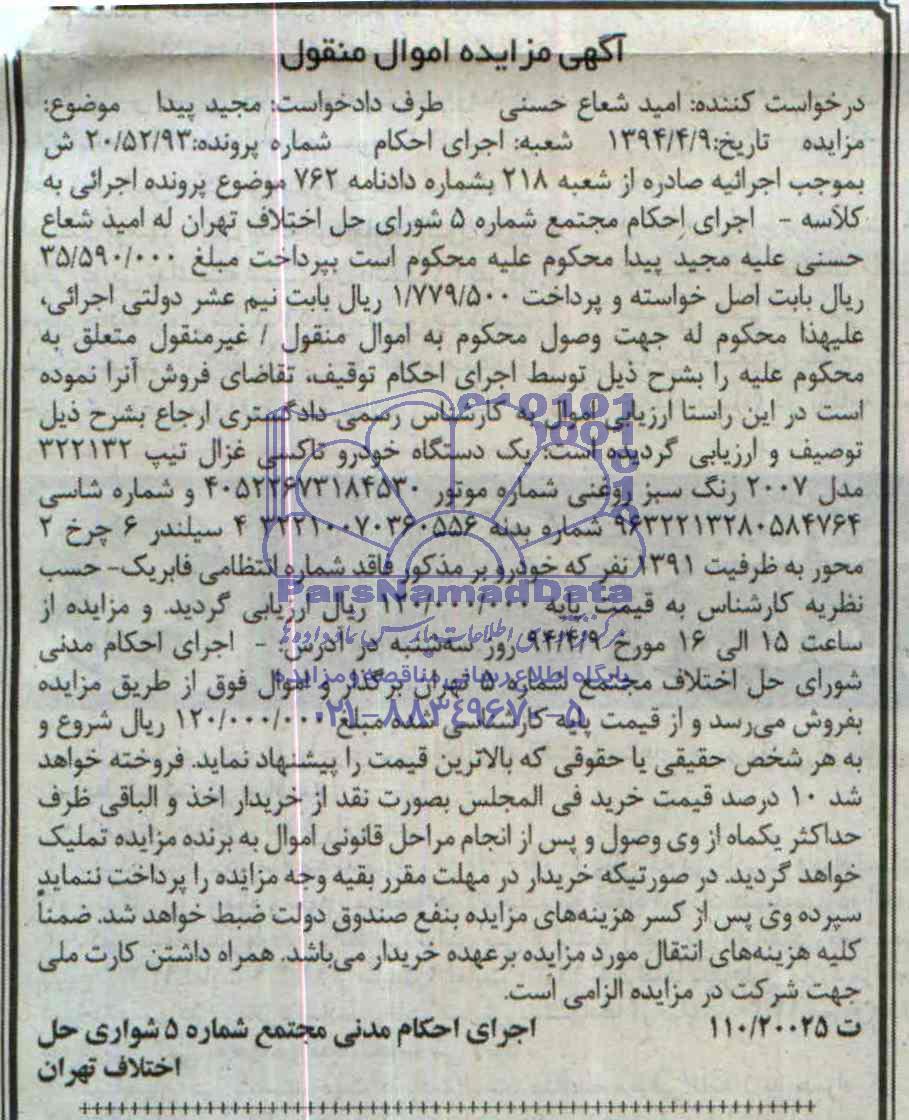 آگهی مزایده اموال منقول
درخواست کننده: امید شعاع حسنی طرف دادخواست: مجید پیدا موضوع:
مزایده تاریخ:۱۳۹۴/۴/۹ شعبه: اجرای احکام شماره پرونده:۲۰/۵۲/۹۳ ش
بموجب اجرائیه صادره از شعبه ۲۱۸ بشماره دادنامه ۷۶۲ موضوع پرونده اجرائی به
کلاسه - اجرای احکام مجتمع شماره ۵ شورای حل اختلاف تهران له امید شعاع
حسنی علیه مجید پیدا محکوم علیه محکوم است بپرداخت مبلغ ۳۵/۵۹۰/۰۰۰
ریال بابت اصل خواسته و پرداخت ۱/۷۷۹/۵۰۰ ریال بابت نیم عشر دولتی اجرائی،
علیهذا محکوم له جهت وصول محکوم به اموال منقول / غیرمنقول متعلق به
محکوم علیه را بشرح ذیل توسط اجرای احکام توقیف، تقاضای فروش آنرا نموده
است در این راستا ارزیابی اموال به کارشناس رسمی دادگستری ارجاع بشرح ذیل
توصیف و ارزیابی گردیده است: یک دستگاه خودرو تاکسی غزال تیپ ۳۲۲۱۳۲
مدل ۲۰۰۷ رنگ سبز روغنی شماره موتور ۴۰۵۲۲۶۷۳۱۸۴۵۳۰ و شماره شاسی
۹۶۳۲۲۱۳۲۸۰۵۸۴۷۶۴ شماره بدنه ۳۲۲۱۰۰۷۰۳۶۰۵۵۶ ۴ سیلندر ۶ چرخ ۲
محور به ظرفیت ۱۳۹۱ نفر که خودرو بر مذکور فاقد شماره انتظامی فابریک- حسب
نظریه کارشناس به قیمت پایه ۱۲۰/۰۰۰/۰۰۰ ریال ارزیابی گردید. و مزایده از
ساعت ۱۵ الی ۱۶ مورخ ۹۴/۴/۹ روز سه‌شنبه در آدرس: - اجرای احکام مدنی
شورای حل اختلاف مجتمع شماره ۵ تهران برگذار و اموال فوق از طریق مزایده
بفروش می‌رسد و از قیمت پایه کارشناسی شده مبلغ ۱۲۰/۰۰۰/۰۰۰ ریال شروع و
به هر شخص حقیقی یا حقوقی که بالاترین قیمت را پیشنهاد نماید. فروخته خواهد
شد ۱۰ درصد قیمت خرید فی المجلس بصورت نقد از خریدار اخذ و الباقی ظرف
حداکثر یکماه از وی وصول و پس از انجام مراحل قانونی اموال به برنده مزایده تملیک
خواهد گردید. در صورتیکه خریدار در مهلت مقرر بقیه وجه مزایده را پرداخت ننماید
سپرده وی پس از کسر هزینه‌های مزایده بنفع صندوق دولت ضبط خواهد شد. ضمناً
کلیه هزینه‌های انتقال مورد مزایده برعهده خریدار می‌باشد. همراه داشتن کارت ملی
جهت شرکت در مزایده الزامی است.
ت ۱۱۰/۲۰۰۲۵ اجرای احکام مدنی مجتمع شماره ۵ شواری حل
اختلاف تهران
ParsNamadData
پایگاه اطلاع رسانی مناقصه و مزایده
۰۲۱-۸۸۳۴۹۶۷۰-۵